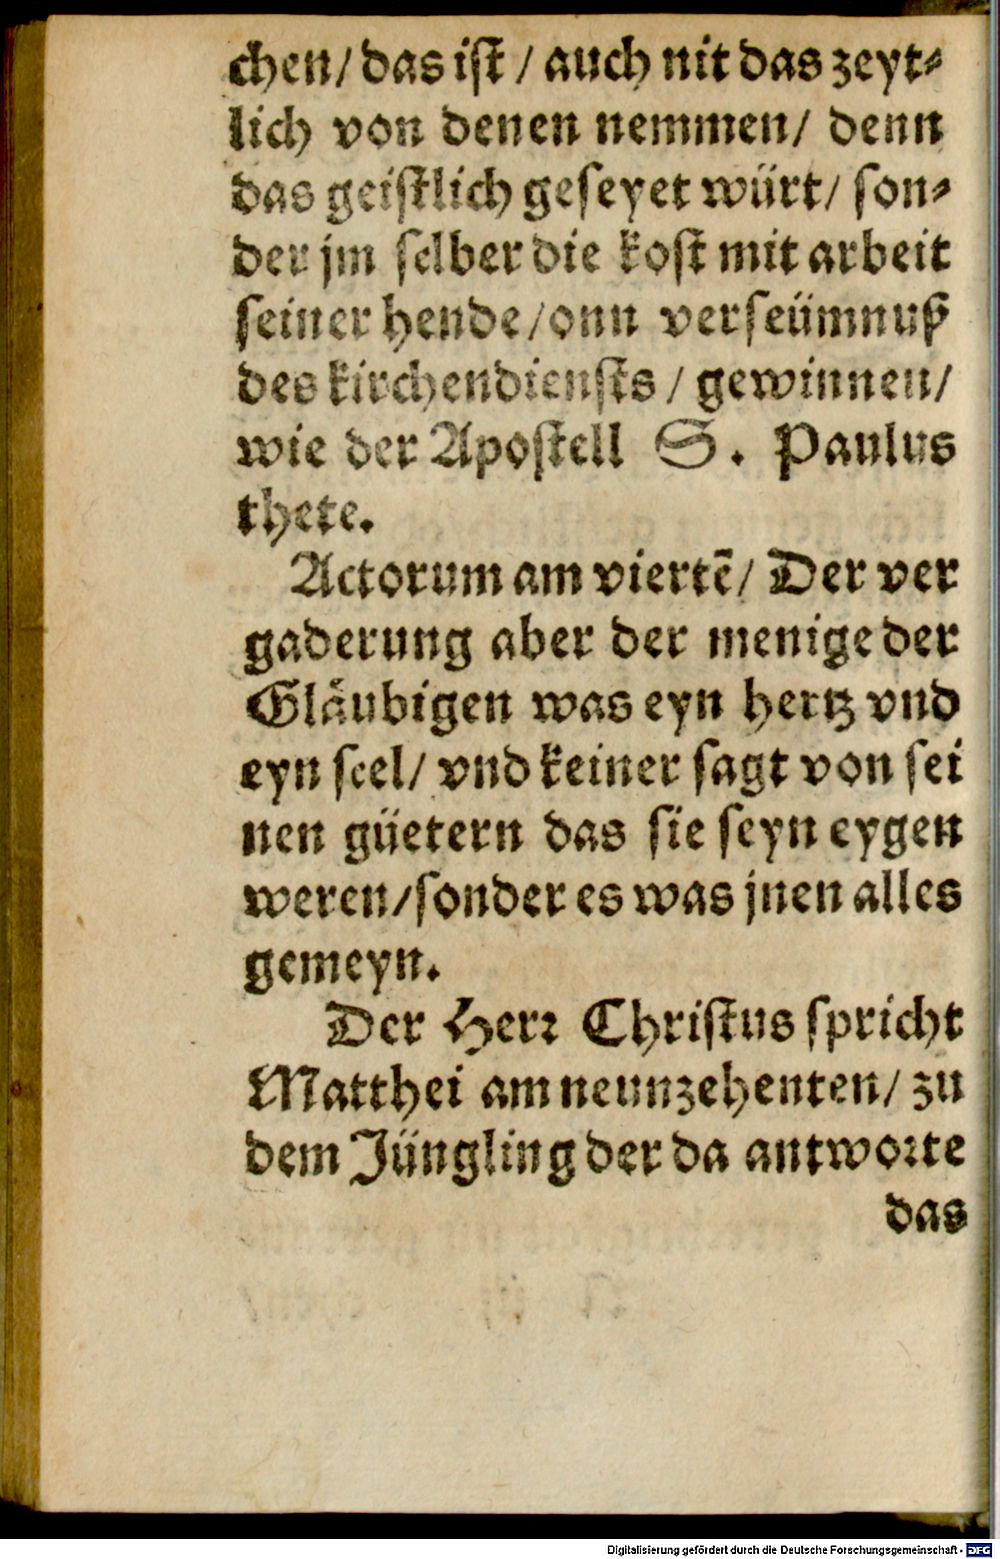 chen/ das ist / auch nit das zeyt⸗
lich von denen nemmen/ denn
das geistlich geseyet würt/ son⸗
der jm selber die kost mit arbeit
seiner hende/ onn verseümnuß
des kirchendiensts / gewinnen/
wie der Apostell S. Paulus
thete.
Actorum am viertē/ Der ver
gaderung aber der menige der
Gläubigen was eyn hertz vnd
eyn seel/ vnd keiner sagt von sei
nen güetern das sie seyn eygen
weren/ sonder es was jnen alles
gemeyn.
Der Herr Christus spricht
Matthei am neunzehenten/ zu
dem Jüngling der da antworte
das
Digitalisierung gefördert durch die Deutsche Forschungsgemeinschaft - DFG